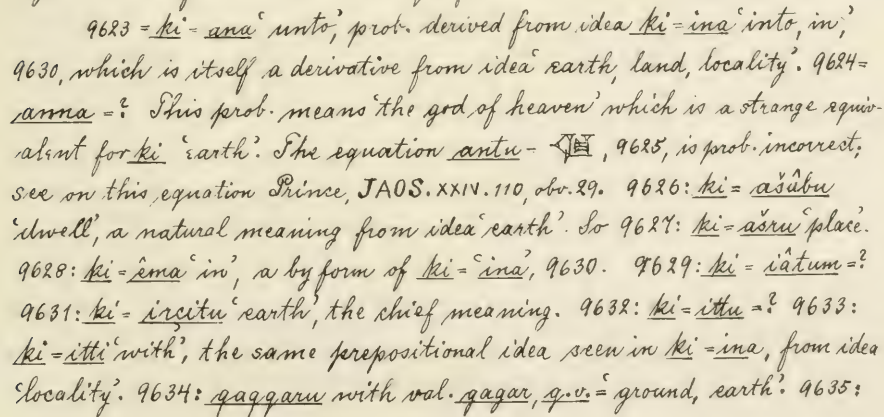 9623 = ki = ana ‘unto’, prob. derived from idea ki = ina ‘into, in’,
9630, which is itself a derivative from idea ‘earth, land, locality’. 9624 =
anna = ? This prob. means ‘the god of heaven’ which is a strange equiv-
alent for ki ‘earth’. The equation antu - , 9625, is prob. incorrect;
see on this equation Prince, JAOS. XXIV. 110, obv. 29. 9626: ki = ašâbu
‘dwell’, a natural meaning from idea ‘earth’. So 9627: ki = ašru ‘place’.
9628: ki = êma ‘in’, a by form of ki = ‘ina’, 9630. 9629: ki = iâtum = ?
9631: ki = irçitu ‘earth’, the chief meaning. 9632: ki = ittu = ? 9633:
ki = itti ‘with’, the same prepositional idea seen in ki = ina, from idea
‘locality’. 9634: qaqqaru with val. gagar, q.v. = ‘ground, earth’. 9635: